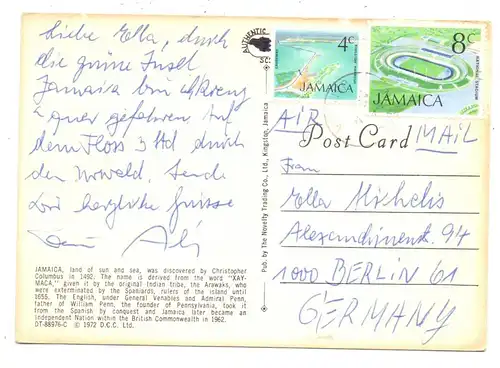 Liebe Ella, durch
die grüne Insel
Jamaica bin ich kreuz
quer gefahren. Auf
dem Floss 3 Std durch
den Urwald. Sende
Dir herzliche Grüsse
Dein
JAMAICA, land of sun and sea, was discovered by Christopher
Columbus in 1492. The name is derived from the word "XAY-
MACA," given it by the original Indian tribe, the Arawaks, who
were exterminated by the Spaniards, rulers of the island until
1655. The English, under General Venables and Admiral Penn,
father of William Penn, the founder of Pennsylvania, took it
from the Spanish by conquest and Jamaica later became an
Independent Nation within the British Commonwealth in 1962.
DT-88976-C © 1972 D.C. Ltd.
Pub. by The Novelty Trading Co., Ltd., Kingston, Jamaica
AUTHENTIC
4c
JAMAICA
8c
NATIONAL STADIUM
JAMAICA
AIR MAIL
Post Card
Frau
Ella Michelis
Alexandrinenst. 94
1000 BERLIN 61
GERMANY